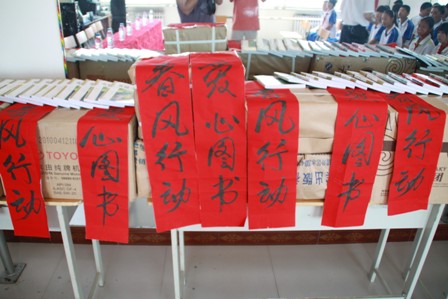 风行动
心图书
春风行动
爱心图书
风行动
心图书
风行动
20100412
TOYO